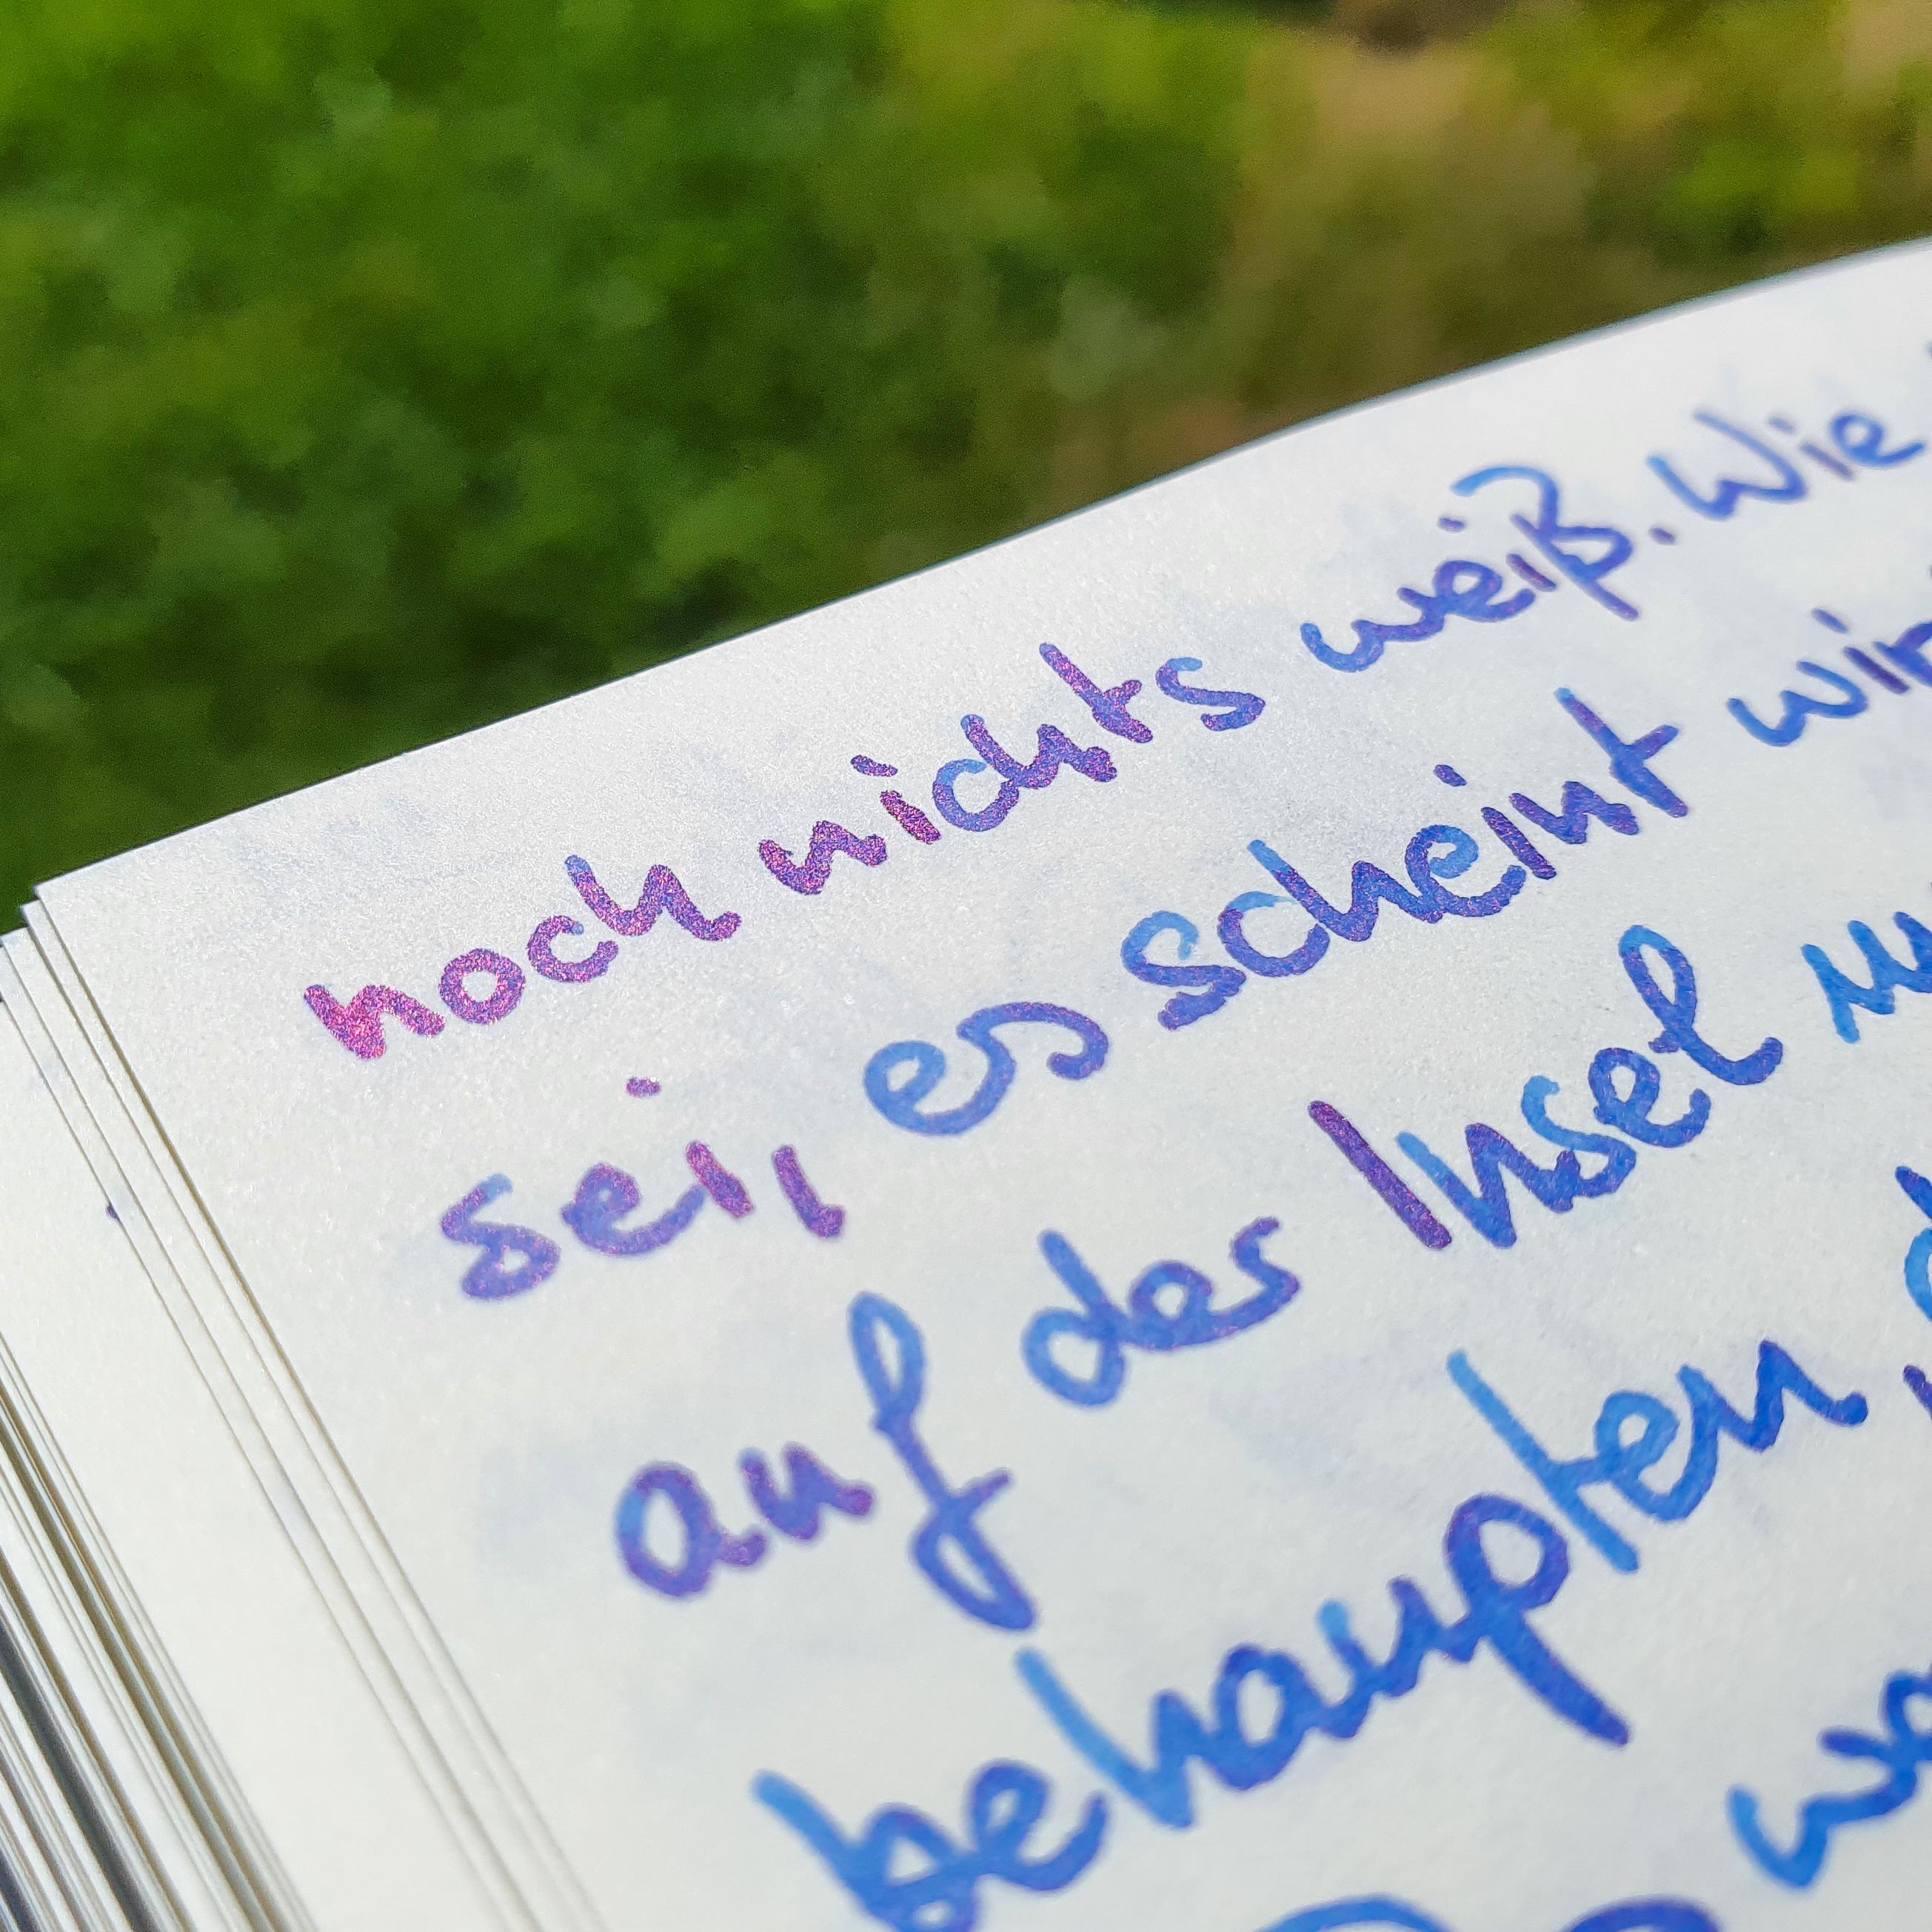 noch nichts weiß. Wie
sei, es scheint
auf der Insel
behaupten